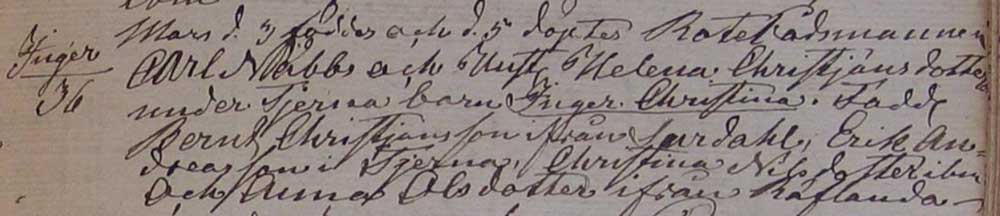 Inger
36
Mars d. 3 föddes och d. 5 döptes Rotebådsmannen
Carl Nabbs och Hust. Helena Christjäns dotter
under Tjerna barn Inger Christina. Fadd.
Bernt Christjänsson ifrån Surdahl, Erik An-
dreasson i Tjerna, Christina Nils dotter ibm
Och Anna Olsdotter ifrån Räflanda